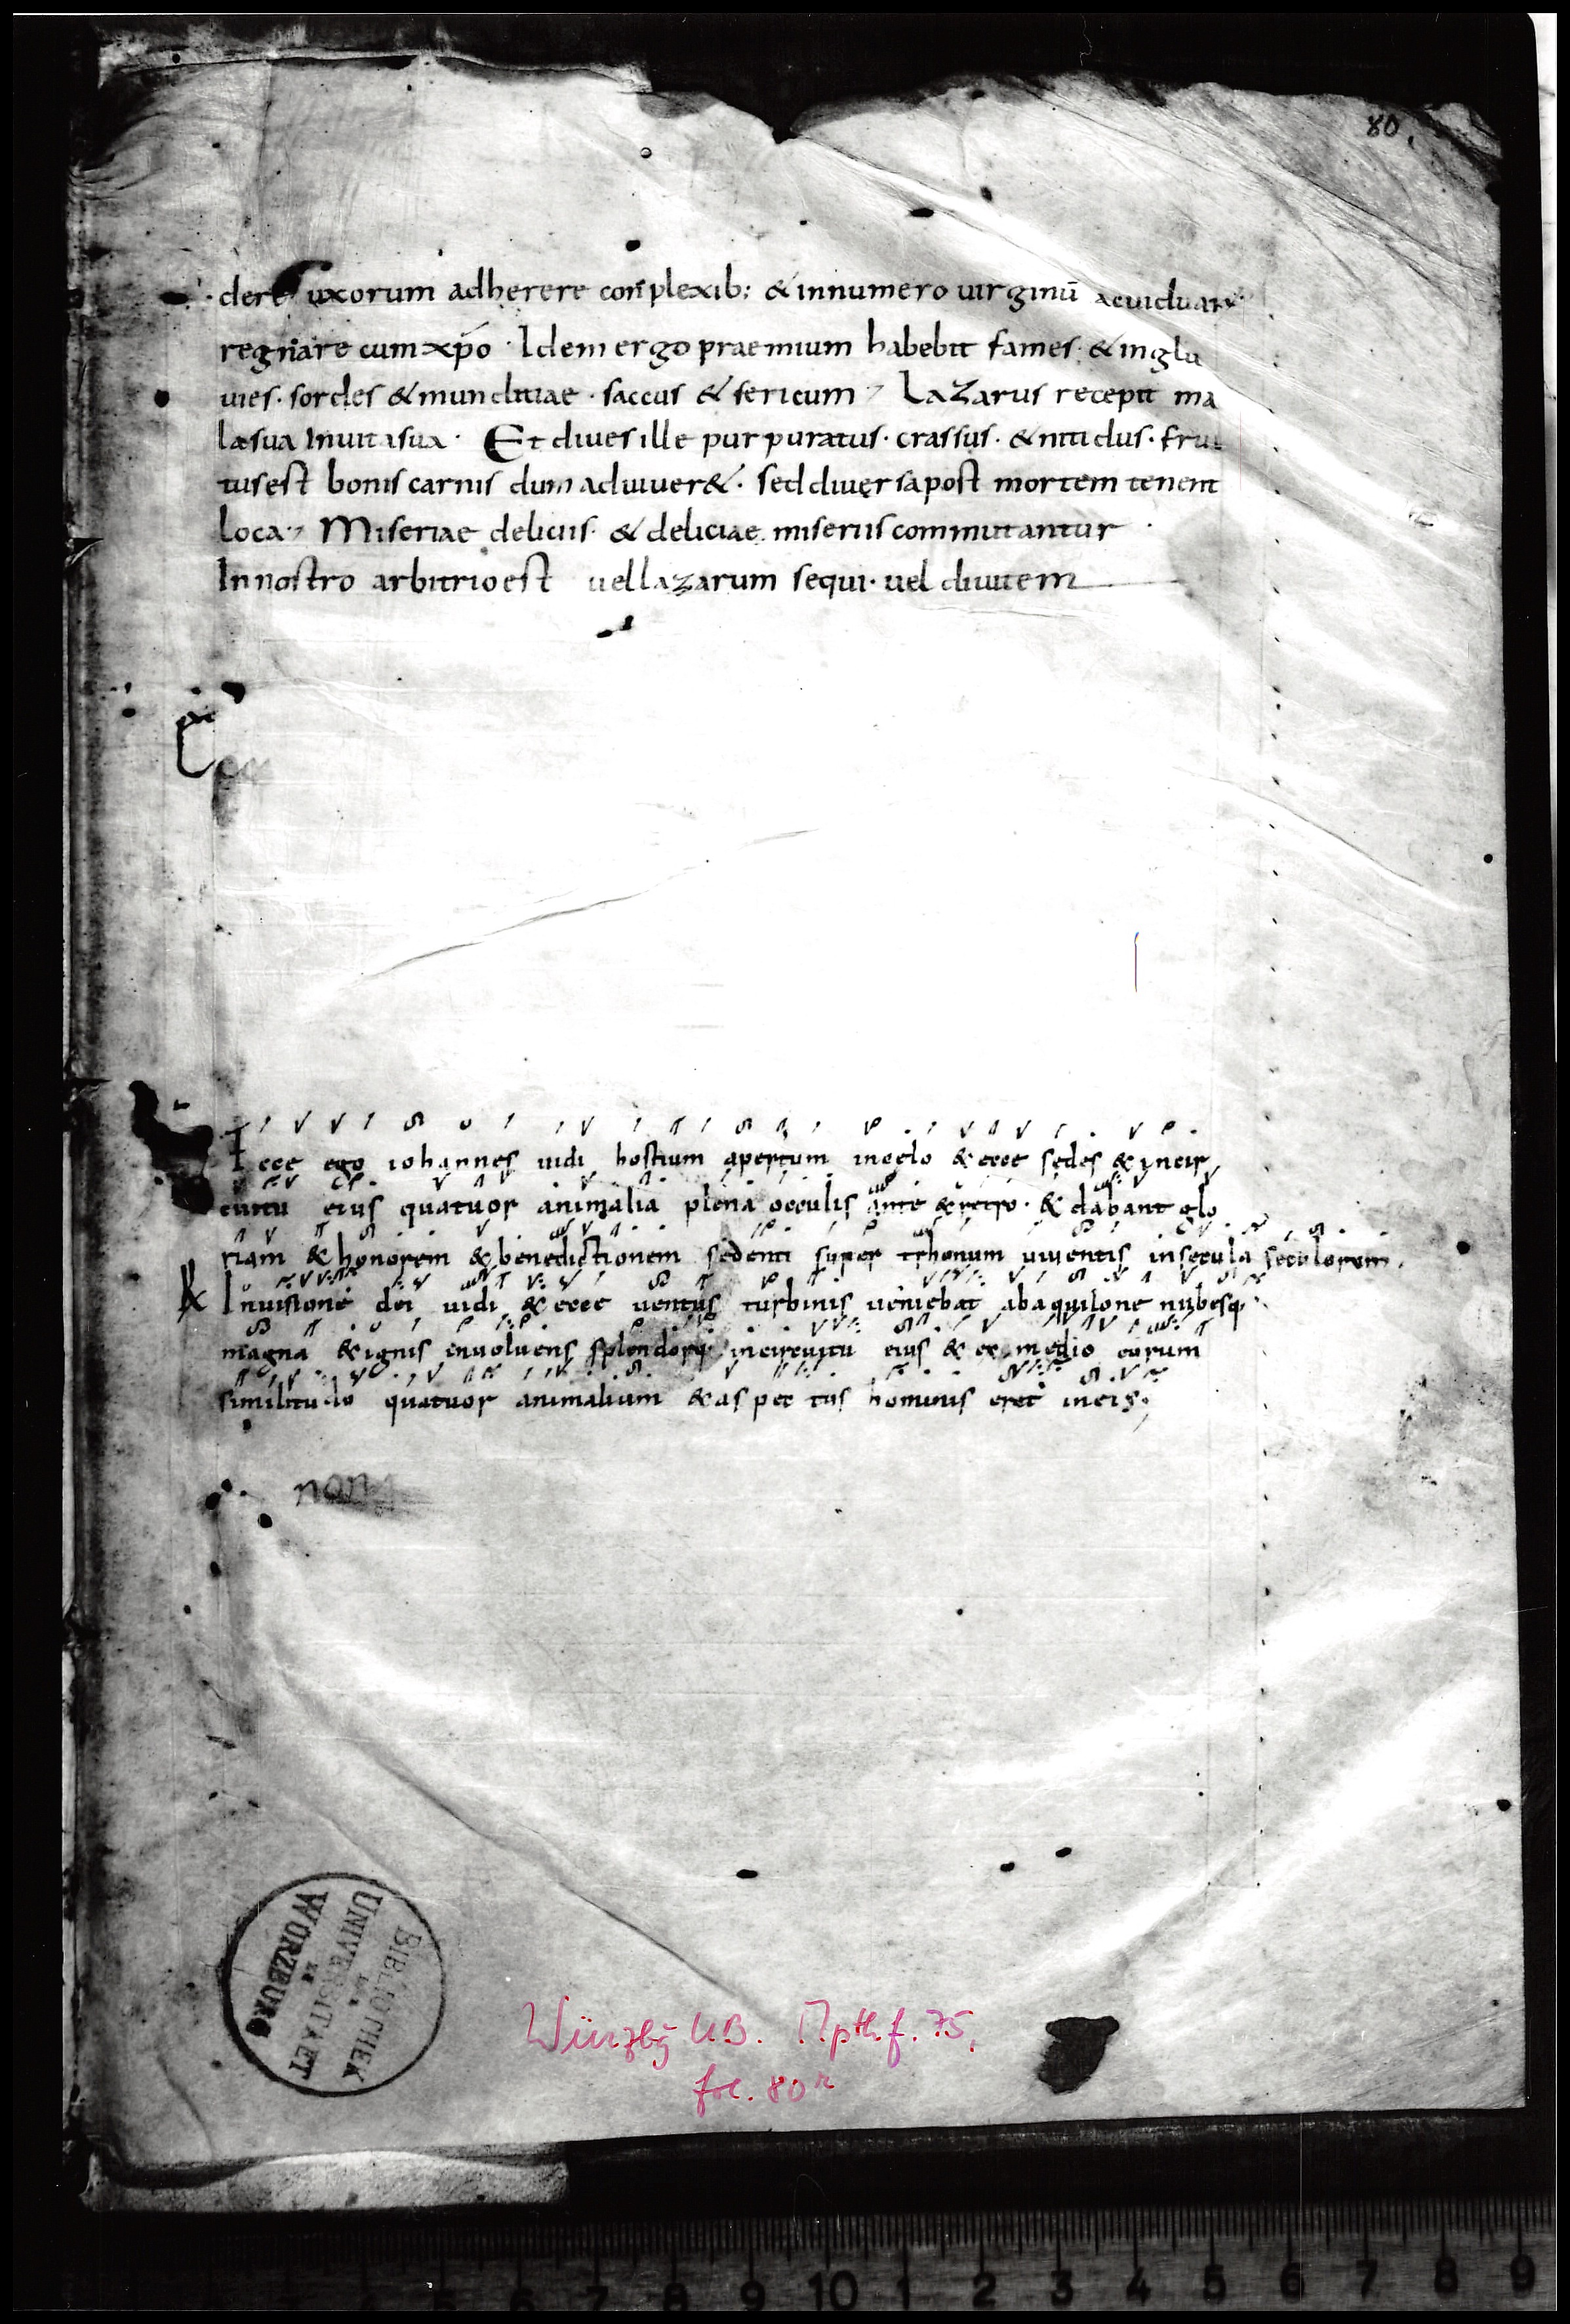 80
dere uxorum adherere complexib; & innumero uirginū ac uiduarū
regnare cum xp̄o · Idem ergo praemium habebit fames · & inglu
uies · sordes & munditiae · saccus & sericum · Lazarus recepit ma
læ sua In uita sua · Et diues ille purpuratus · crassus · & nitidus · frui
tus est bonis carnis dum aduiuer& · sed diuersa post mortem tenent
Loca · Miseriae deliciis · & deliciae miseriis commutantur ·
In nostro arbitrio est uel lazarum sequi · uel diuitem
Ecce ego iohannes uidi hostium apertum in celo & ecce sedes & in cir
cuitu eius quatuor animalia plena occulis ante & retro · & dabant glo
riam & honorem & benedictionem sedenti super trhonum uiuentis in secula seculorum.
℟ In uisione dei uidi & ecce uentus turbinis ueniebat ab aquilone nubesq;
magna & ignis inuoluens splendorq; in circuitu eius & ex medio eorum
similitudo quatuor animalium & aspectus hominis erat in eis;
non
BIBLIOTHEK
UNIVERSITAET
WÜRZBURG
Würzbg UB. Mpth.f. 75,
fol. 80r
5 6 7 8 9 10 1 2 3 4 5 6 7 8 9